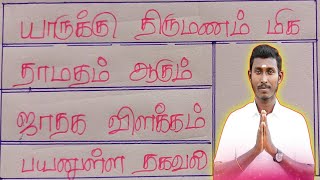 யாருக்கு திருமணம் மிக
தாமதம் ஆகும்
ஜாதக விளக்கம்
பயனுள்ள தகவல்